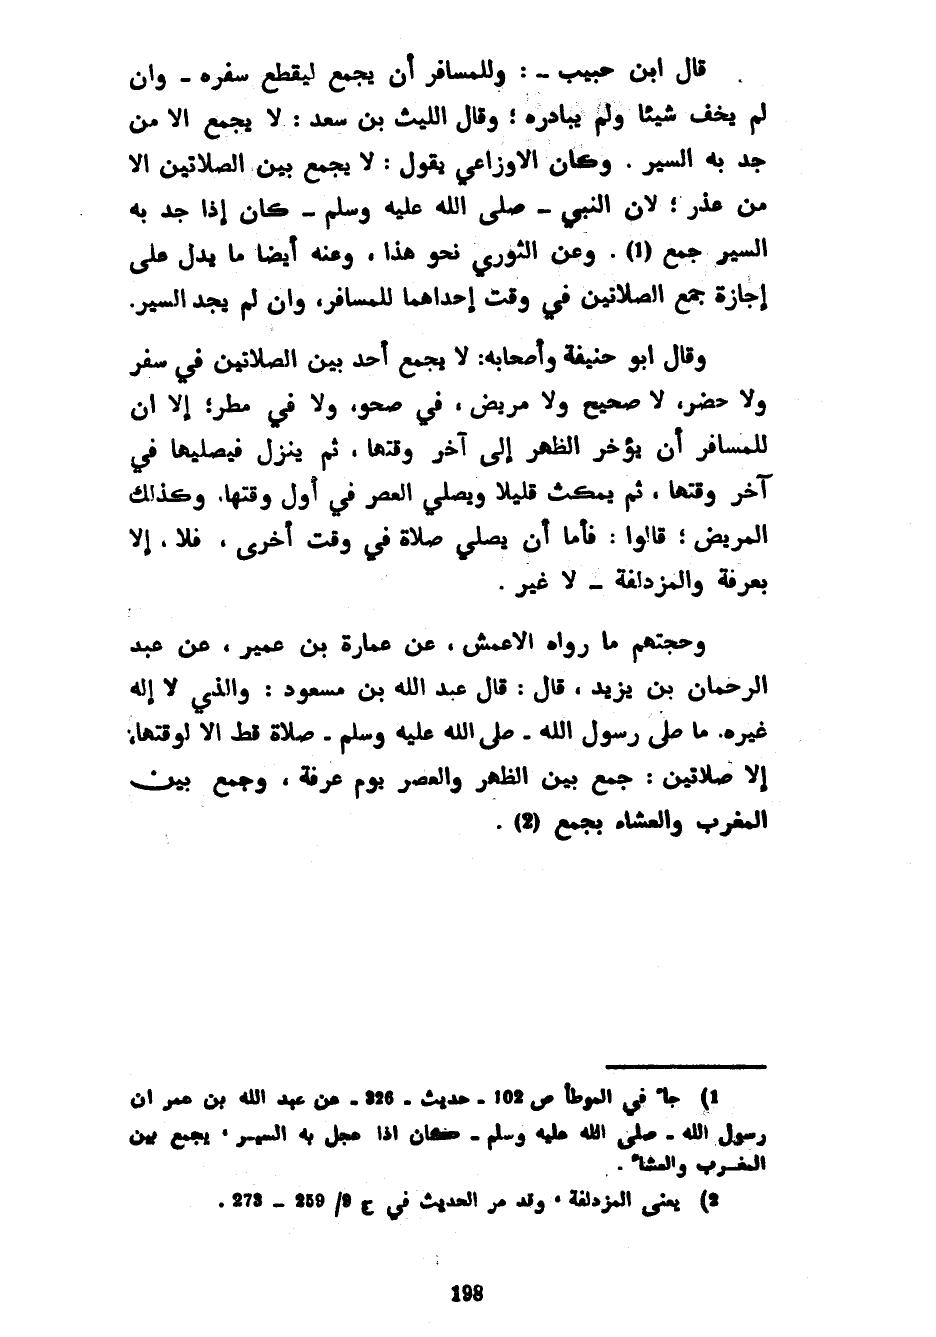 قال ابن حبيب ـ : وللمسافر أن يجمع ليقطع سفره ـ وان
لم يخف شيئا ولم يبادره ؛ وقال الليث بن سعد : لا يجمع الا من
جد به السير . وكان الاوزاعي يقول : لا يجمع بين الصلاتين الا
من عذر ؛ لان النبي ـ صلى الله عليه وسلم ـ كان إذا جد به
السير جمع (1) . وعن الثوري نحو هذا ، وعنه أيضا ما يدل على
إجازة جمع الصلاتين في وقت إحداهما للمسافر، وان لم يجد السير.
وقال ابو حنيفة وأصحابه: لا يجمع أحد بين الصلاتين في سفر
ولا حضر، لا صحيح ولا مريض ، في صحو، ولا في مطر؛ إلا ان
للمسافر أن يؤخر الظهر إلى آخر وقتها ، ثم ينزل فيصليها في
آخر وقتها ، ثم يمكث قليلا ويصلي العصر في أول وقتها، وكذلك
المريض ؛ قالوا : فأما أن يصلي صلاة في وقت أخرى ، فلا ، إلا
بعرفة والمزدلفة ـ لا غير .
وحجتهم ما رواه الاعمش ، عن عمارة بن عمير ، عن عبد
الرحمان بن يزيد ، قال : قال عبد الله بن مسعود : والذي لا إله
غيره، ما صلى رسول الله ـ صلى الله عليه وسلم ـ صلاة قط الا لوقتها،
إلا صلاتين : جمع بين الظهر والعصر يوم عرفة ، وجمع بين
المغرب والعشاء بجمع (2) .
1) جاء في الموطأ ص 102 ـ حديث ـ 326 ـ عن عبد الله بن عمر ان
رسول الله ـ صلى الله عليه وسلم ـ كان اذا عجل به السير ، يجمع بين
المغرب والعشاء .
2) يعنى المزدلفة ، وقد مر الحديث في ج 9/ 259 ـ 273 .
198